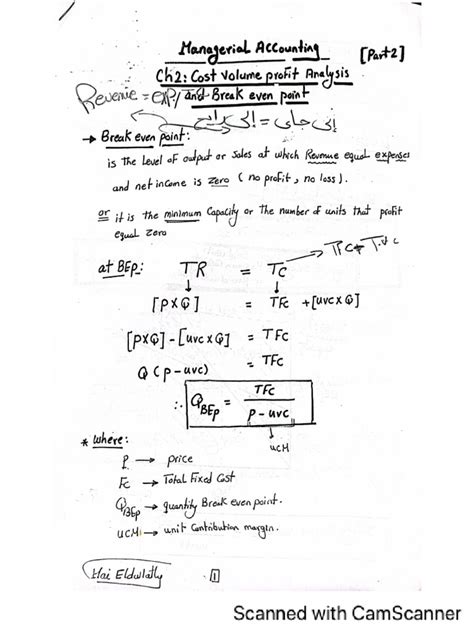 Managerial Accounting [Part 2]
Ch2: Cost Volume profit Analysis
and Break even point
Revenue = EXP/
إلى جاى = إلى رايح
→ Break even point:
is the Level of output or sales at which Revenue equal expenses
and net income is Zero ( no profit , no loss ).
or it is the minimum Capacity or The number of units that profit
equal zero
at BEP: TR = TC → TFC + T.V.C
↓ ↓
[P X Q] = TFC + [uvc X Q]
[P X Q] - [uvc X Q] = TFC
Q ( P - uvc) = TFC
∴ Q BEP = TFC / P - uvc
↓
UCM
* where:
P → price
FC → Total Fixed Cost
Q BEP → quantity Break even point.
UCM → unit Contribution margin.
Hai Eldwlatly 1
Scanned with CamScanner